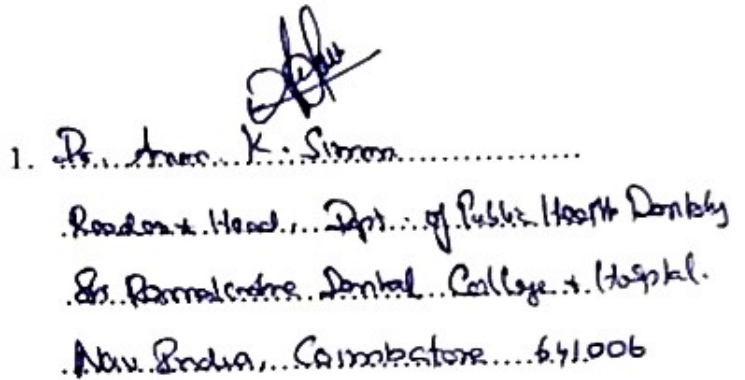 1. Dr. Arun K. Simon
Reader & Head, Dept. of Public Health Dentistry
Sri Ramakrishna Dental College & Hospital.
Nav India, Coimbatore 641006